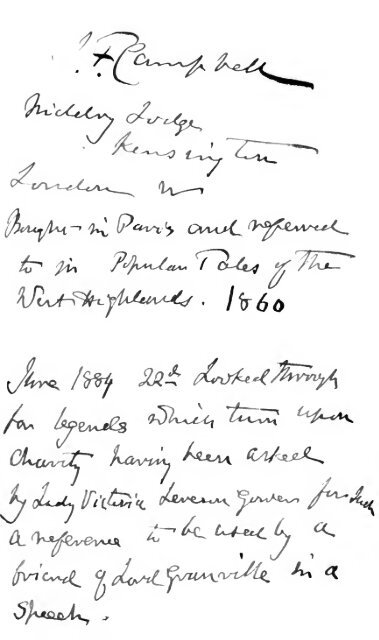 J F Campbell
Niddry Lodge
Kensington
London W
Bought in Paris and referred
to in Popular Tales of the
West Highlands. 1860
June 1884 22d Looked through
for legends which turn upon
charity having been asked
by Lady Victoria Leveson Gower for such
a reference to be used by a
friend of Lord Granville in a
speech.